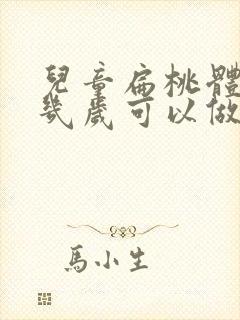 兒童扁桃體
幾歲可以做
馬小生